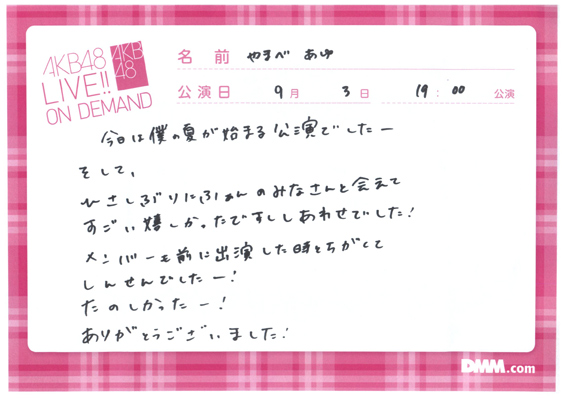 AKB48
LIVE!!
ON DEMAND
AKB
48
名前 やまべ あゆ
公演日 9月 3日 19:00 公演
今日は僕の夏が始まる公演でしたー
そして、
ひさしぶりにふぁんのみなさんと会えて
すごい嬉しかったですししあわせでした!
メンバーも前に出演した時とちがくて
しんせんでしたー!
たのしかったー!
ありがとうございました!
DMM.com